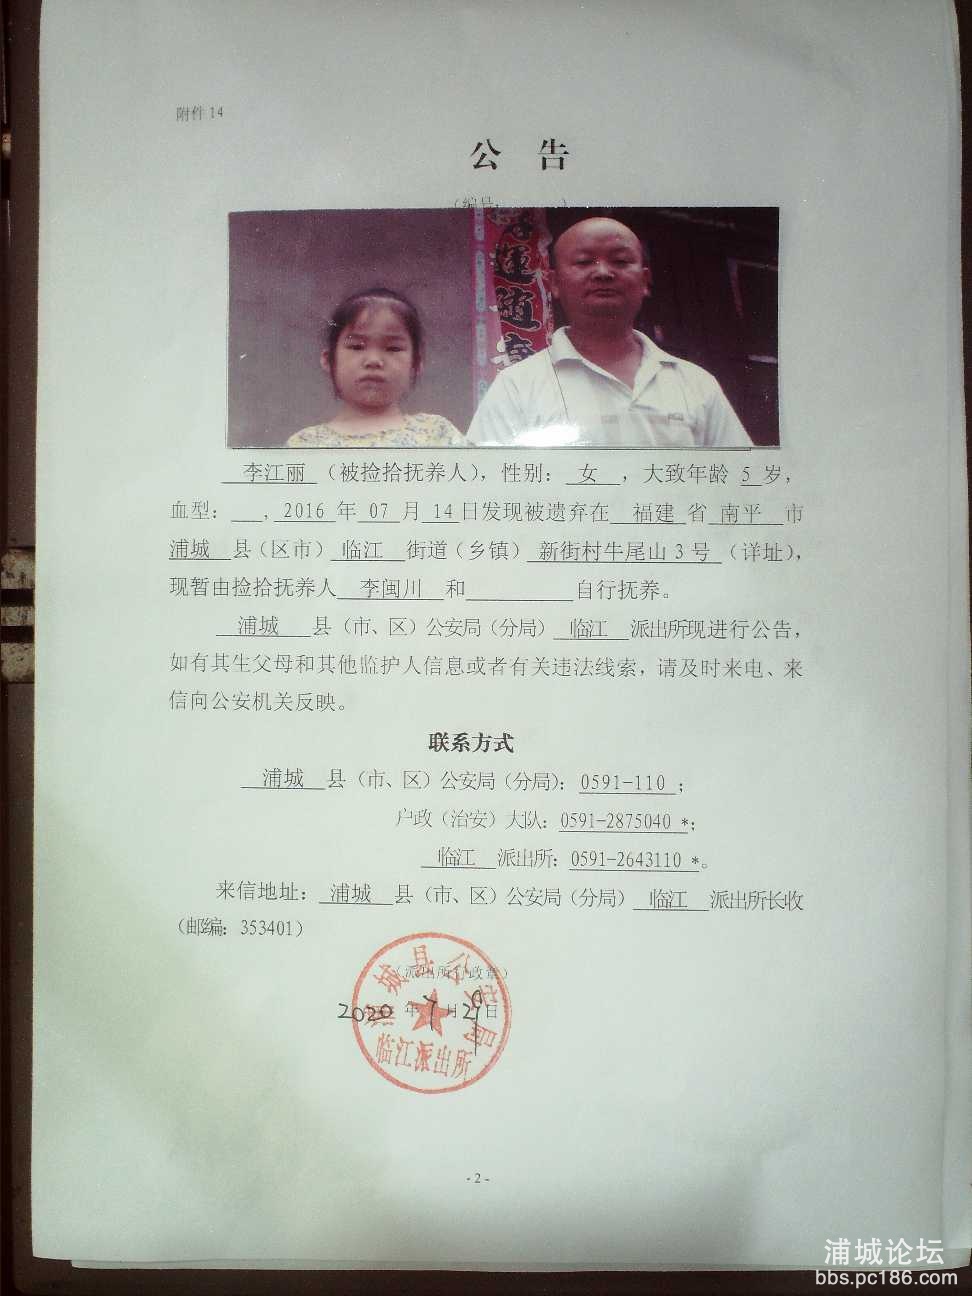 附件 14
公 告
（编号：　　　）
好運隨
李江丽 （被捡拾抚养人），性别： 女 ，大致年龄 5 岁，
血型： ，2016 年 07 月 14 日发现被遗弃在 福建 省 南平 市
浦城 县（区市） 临江 街道（乡镇） 新街村牛尾山 3 号 （详址），
现暂由捡拾抚养人 李闽川 和 自行抚养。
浦城 县（市、区）公安局（分局） 临江 派出所现进行公告，
如有其生父母和其他监护人信息或者有关违法线索，请及时来电、来
信向公安机关反映。
联系方式
浦城 县（市、区）公安局（分局）：0591-110 ；
户政（治安）大队：0591-2875040 *；
临江 派出所：0591-2643110 *。
来信地址： 浦城 县（市、区）公安局（分局） 临江 派出所长收
（邮编：353401）
（派出所行政章）
2020 年 7 月 29 日
浦城县公安局
临江派出所
- 2 -
浦城论坛
bbs.pc186.com